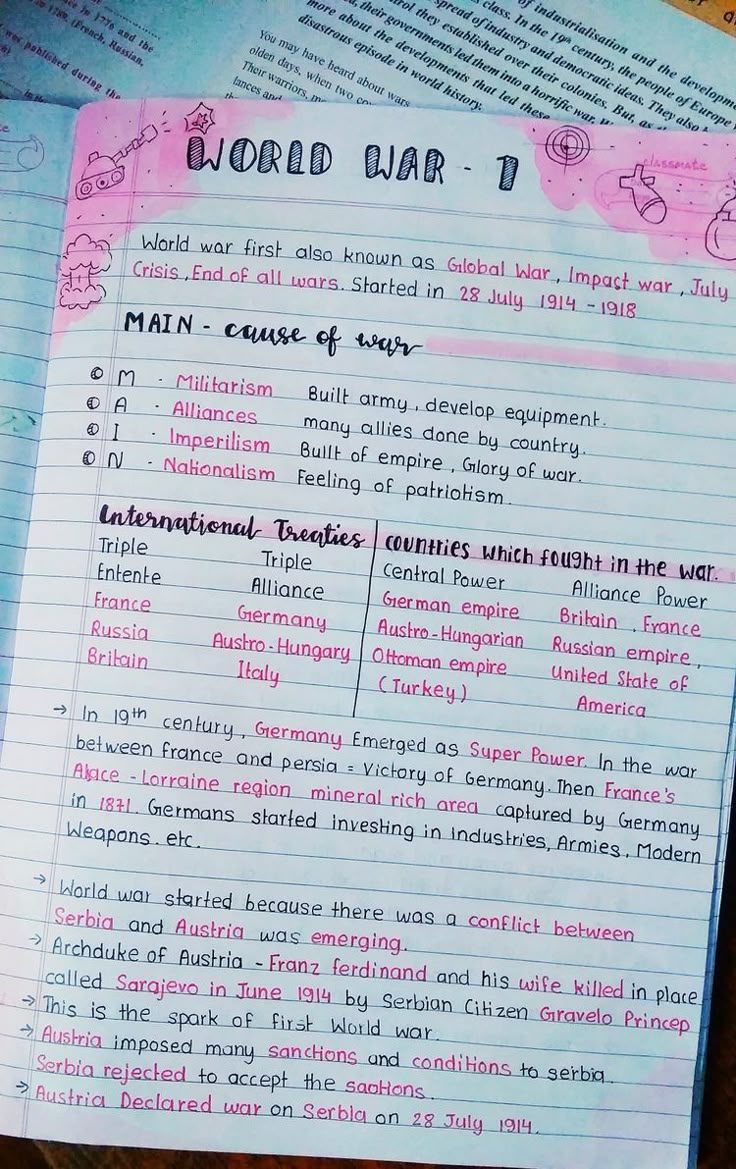 in 1776 and the
(French, Russian,
was published during the
of industrialisation and the developme
class. In the 19th century, the people of Europe
spread of industry and democratic ideas. They also
they established over their colonies. But, as
their governments led them into a horrific war.
more about the developments that led these
disastrous episode in world history.
You may have heard about wars
olden days, when two
Their warriors,
lances and
classmate
WORLD WAR - 1
World war first also known as Global War, Impact war, July
Crisis, End of all wars. Started in 28 July 1914 - 1918
MAIN - cause of war
M - Militarism Built army, develop equipment.
A - Alliances many allies done by country.
I - Imperilism Built of empire, Glory of war.
N - Nationalism Feeling of patriotism.
International Treaties countries which fought in the war.
Triple Triple Central Power Alliance Power
Entente Alliance German empire Britain, France
France Germany Austro-Hungarian Russian empire,
Russia Austro-Hungary Ottoman empire United State of
Britain Italy (Turkey) America
→ In 19th century, Germany Emerged as Super Power. In the war
between france and persia = Victory of Germany. Then France's
Alace - Lorraine region mineral rich area captured by Germany
in 1871. Germans started investing in Industries, Armies, Modern
Weapons. etc.
→ World war started because there was a conflict between
Serbia and Austria was emerging.
→ Archduke of Austria - Franz ferdinand and his wife killed in place
called Sarajevo in June 1914 by Serbian Citizen Gravelo Princep
→ This is the spark of first World war.
→ Austria imposed many sanctions and conditions to serbia.
Serbia rejected to accept the saotions.
→ Austria Declared war on Serbia on 28 July 1914.